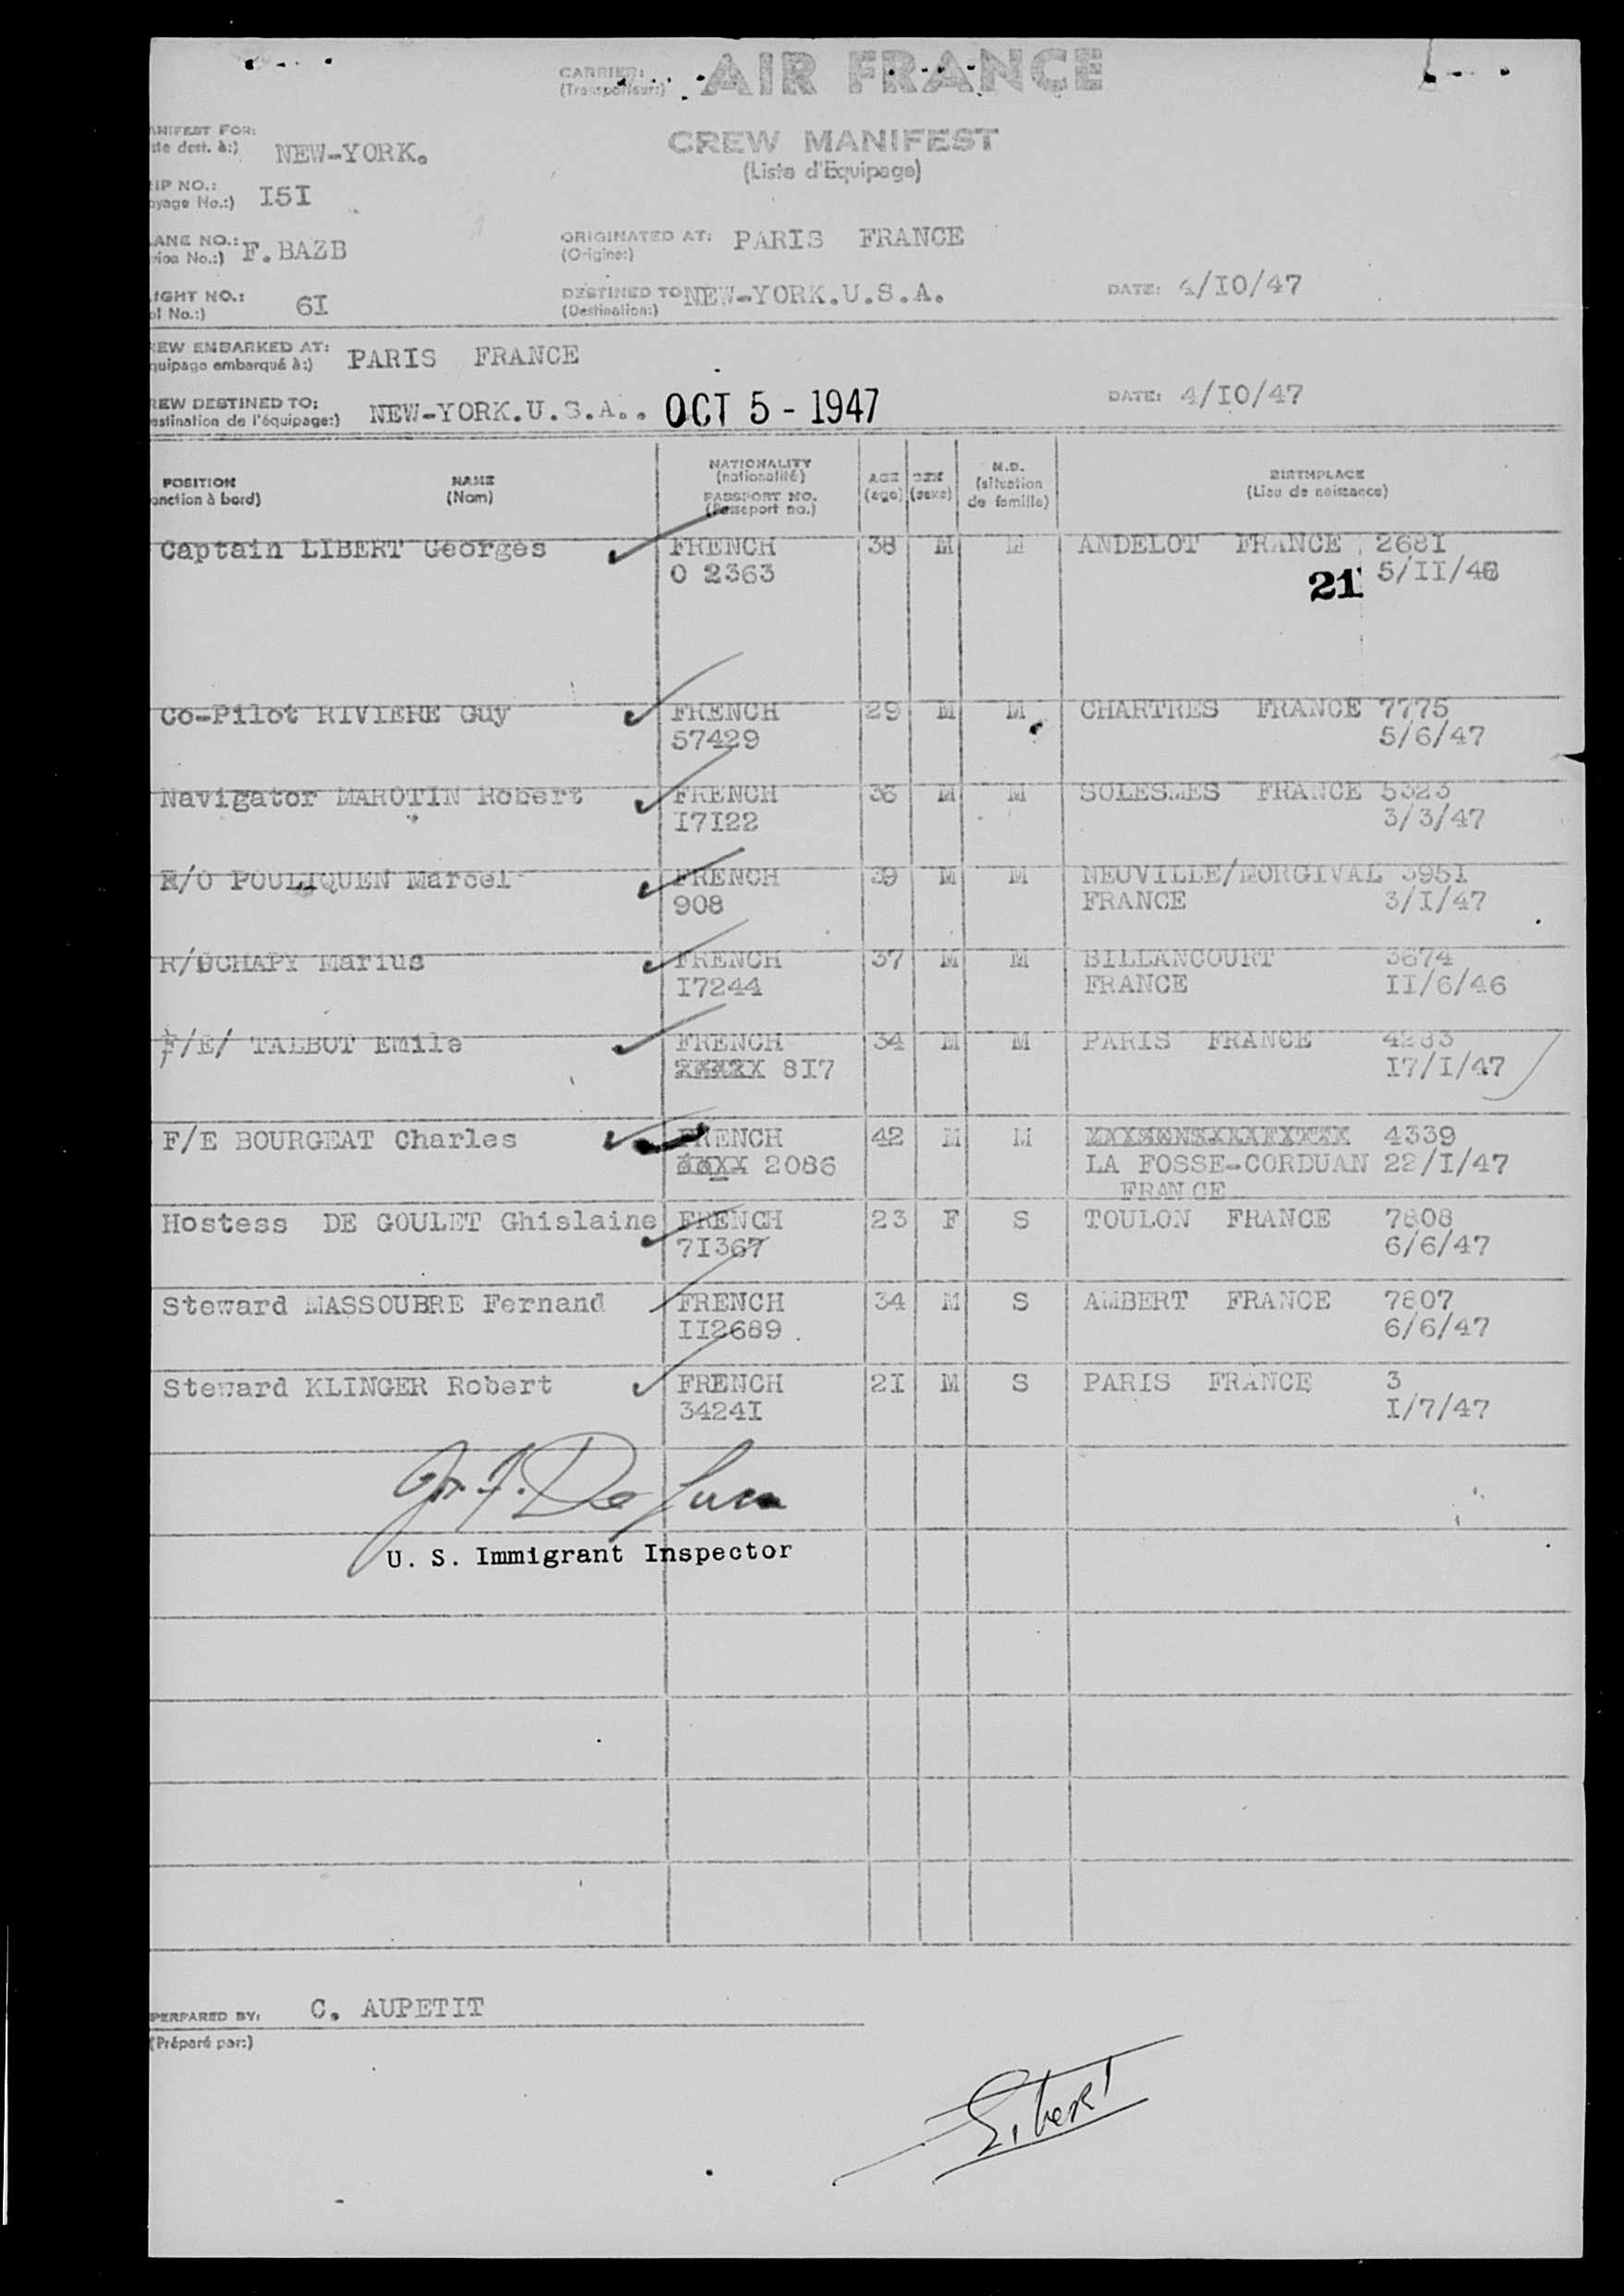 CARRIER: AIR FRANCE
(Transporteur:)
ANIFEST FOR: NEW-YORK.
ste dest. à:)
CREW MANIFEST
(Liste d'Equipage)
IP NO.: I5I
yage No.:)
ANE NO.: F.BAZB
vion No.:)
ORIGINATED AT: PARIS FRANCE
(Origine:)
IGHT NO.: 6I
ol No.:)
DESTINED TO NEW-YORK.U.S.A.
(Destination:)
DATE: 4/IO/47
EW EMBARKED AT: PARIS FRANCE
quipage embarqué à:)
REW DESTINED TO: NEW-YORK.U.S.A.. OCT 5 - 1947
estination de l'équipage:)
DATE: 4/IO/47
POSITION NAME NATIONALITY AGE SEX M.D. BIRTHPLACE
onction à bord) (Nom) (nationalité) (age) (sexe) (situation de famille) (Lieu de naissance)
PASSPORT NO.
(Passeport no.)
Captain LIBERT Georges FRENCH 38 M M ANDELOT FRANCE 268I
O 2363 21 5/II/46
Co-Pilot RIVIERE Guy FRENCH 29 M M CHARTRES FRANCE 7775
57429 5/6/47
Navigator MAROTIN Robert FRENCH 36 M M SOLESMES FRANCE 5323
I7I22 3/3/47
R/O POULIQUEN Marcel FRENCH 39 M M NEUVILLE/MORGIVAL 395I
908 FRANCE 3/I/47
R/OCHAPY Marius FRENCH 37 M M BILLANCOURT 3674
I7244 FRANCE II/6/46
F/E/ TALBOT Emile FRENCH 34 M M PARIS FRANCE 4283
8I7 I7/I/47
F/E BOURGEAT Charles FRENCH 42 M M 4339
2086 LA FOSSE-CORDUAN 22/I/47
FRANCE
Hostess DE GOULET Ghislaine FRENCH 23 F S TOULON FRANCE 7808
7I367 6/6/47
Steward MASSOUBRE Fernand FRENCH 34 M S AMBERT FRANCE 7807
II2689 6/6/47
Steward KLINGER Robert FRENCH 2I M S PARIS FRANCE 3
3424I I/7/47
U. S. Immigrant Inspector
PERPARED BY: C. AUPETIT
(Préparé par:)
Libert